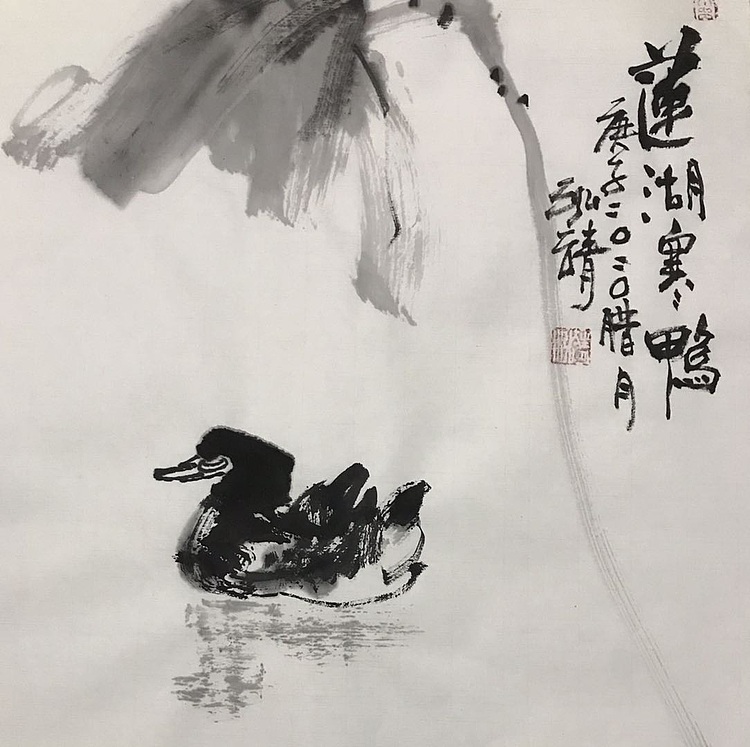 蓮湖寒鴨
庚子二〇二〇腊月
弘靖